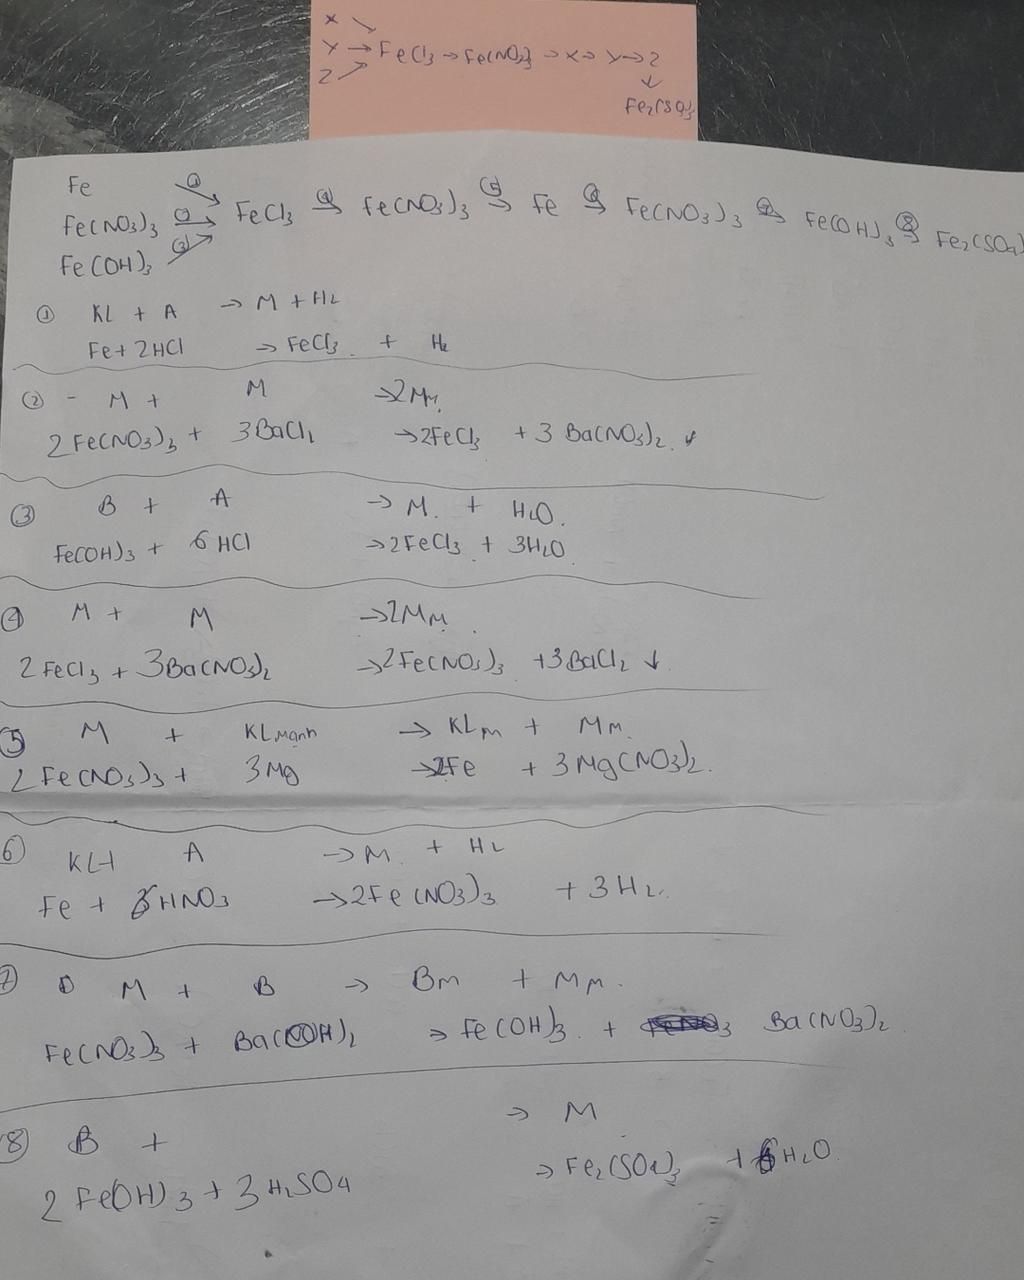 X ↘
Y → FeCl3 → Fe(NO3)3 → X → Y → Z
Z ↗ ↓
Fe2(SO4)3
Fe ①
Fe(NO3)3 → FeCl3 ④→ Fe(NO3)3 ⑤→ Fe ⑥→ Fe(NO3)3 ⑦→ Fe(OH)3 ⑧→ Fe2(SO4)
Fe(OH)3 ③
① KL + A → M + H2
Fe + 2HCl → FeCl3 + H2
② - M + M → 2Mm
2Fe(NO3)3 + 3BaCl2 → 2FeCl3 + 3Ba(NO3)2 ↓
③ B + A → M + H2O.
Fe(OH)3 + 6HCl → 2FeCl3 + 3H2O
④ M + M → 2Mm
2FeCl3 + 3Ba(NO3)2 → 2Fe(NO3)3 + 3BaCl2 ↓
⑤ M + KLmạnh → KLm + Mm.
2Fe(NO3)3 + 3Mg → 2Fe + 3Mg(NO3)2.
⑥ KL+ A → M + H2
Fe + 6HNO3 → 2Fe(NO3)3 + 3H2.
⑦ M + B → Bm + Mm.
Fe(NO3)3 + Ba(OH)2 → Fe(OH)3 + Ba(NO3)2
⑧ B + → M
2Fe(OH)3 + 3H2SO4 → Fe2(SO4)3 + 6H2O.